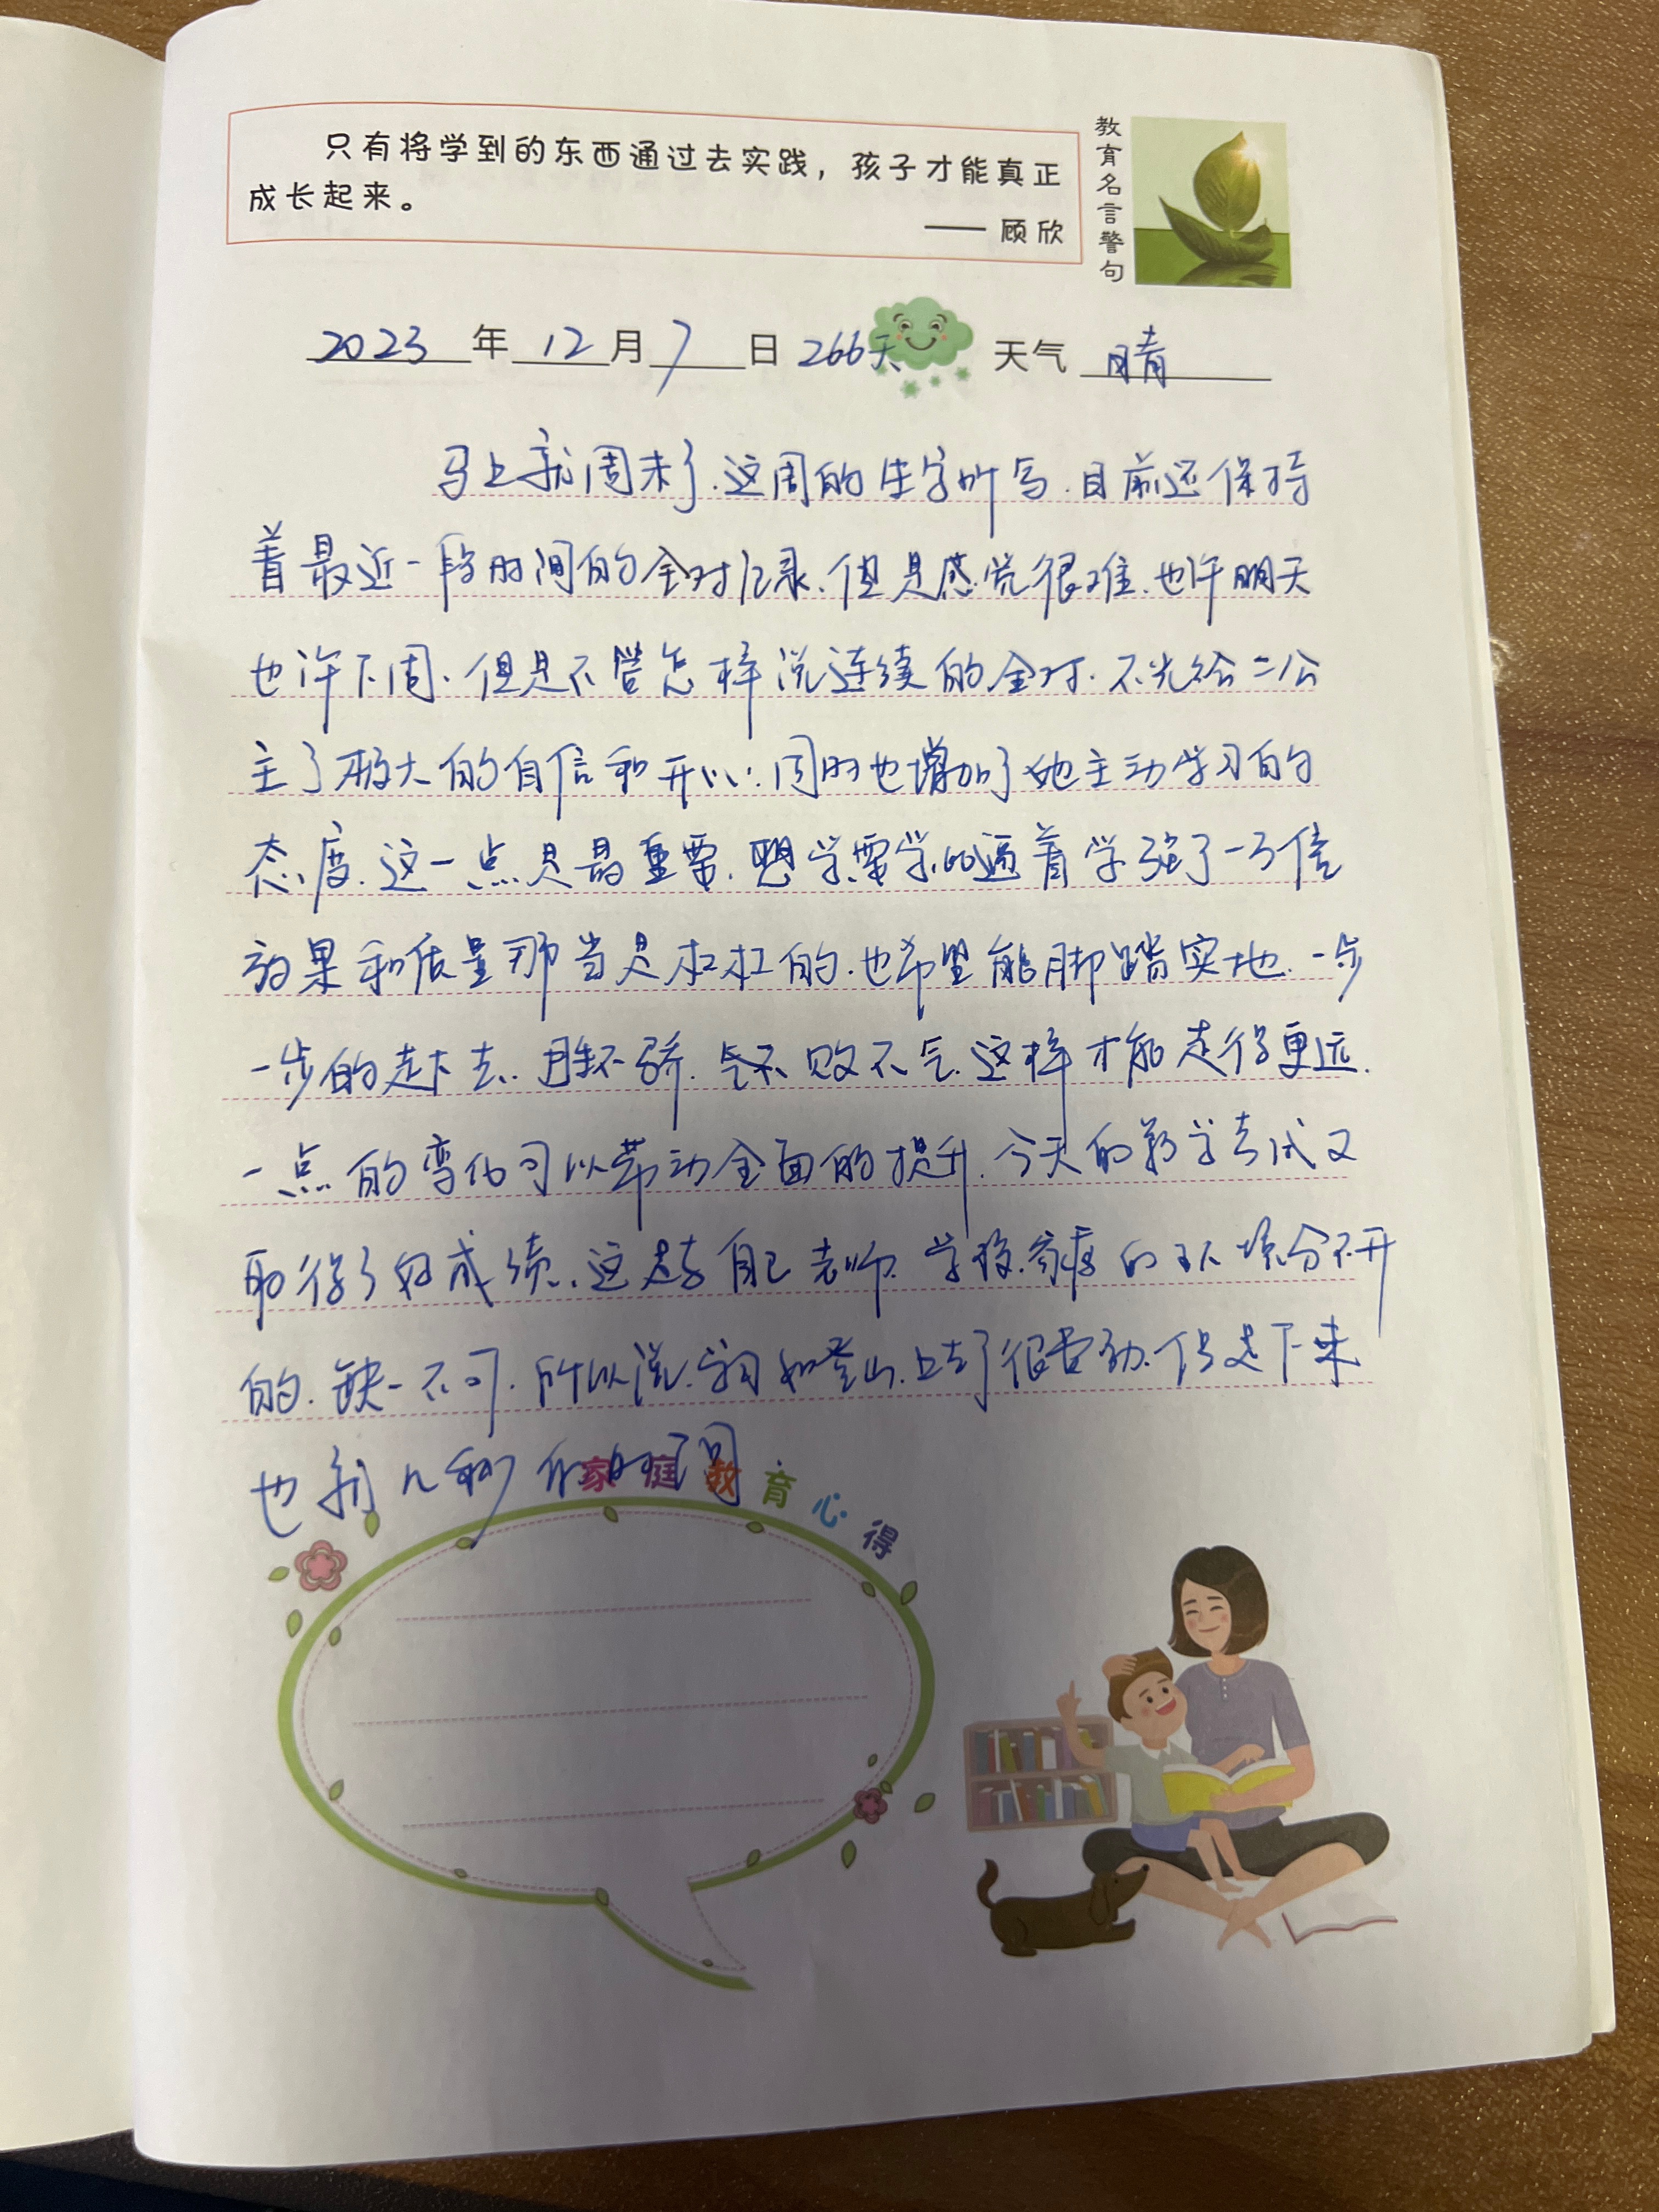 只有将学到的东西通过去实践，孩子才能真正
成长起来。
—— 顾欣
教育名言警句
2023 年 12 月 7 日 266天 天气 晴
马上就周末了.这周的生字听写.目前还保持
着最近一段时间的全对记录.但是感觉很难.也许明天
也许下周.但是不管怎样说连续的全对.不光给二公
主了极大的自信和开心.同时也增加了她主动学习的
态度.这一点是最重要.想学要学.比逼着学强了一万倍
效果和质量那当是杠杠的.也希望能脚踏实地.一步
一步的走下去.胜不骄.气不败不气.这样才能走得更远.
一点的变化可以带动全面的提升.今天的数学考试又
取得了好成绩.这是与自己老师.学校.家庭的环境分不开
的.缺一不可.所以说.学习如登山.上去了很费劲.但是下来
也就几秒的时间
家庭教育心得